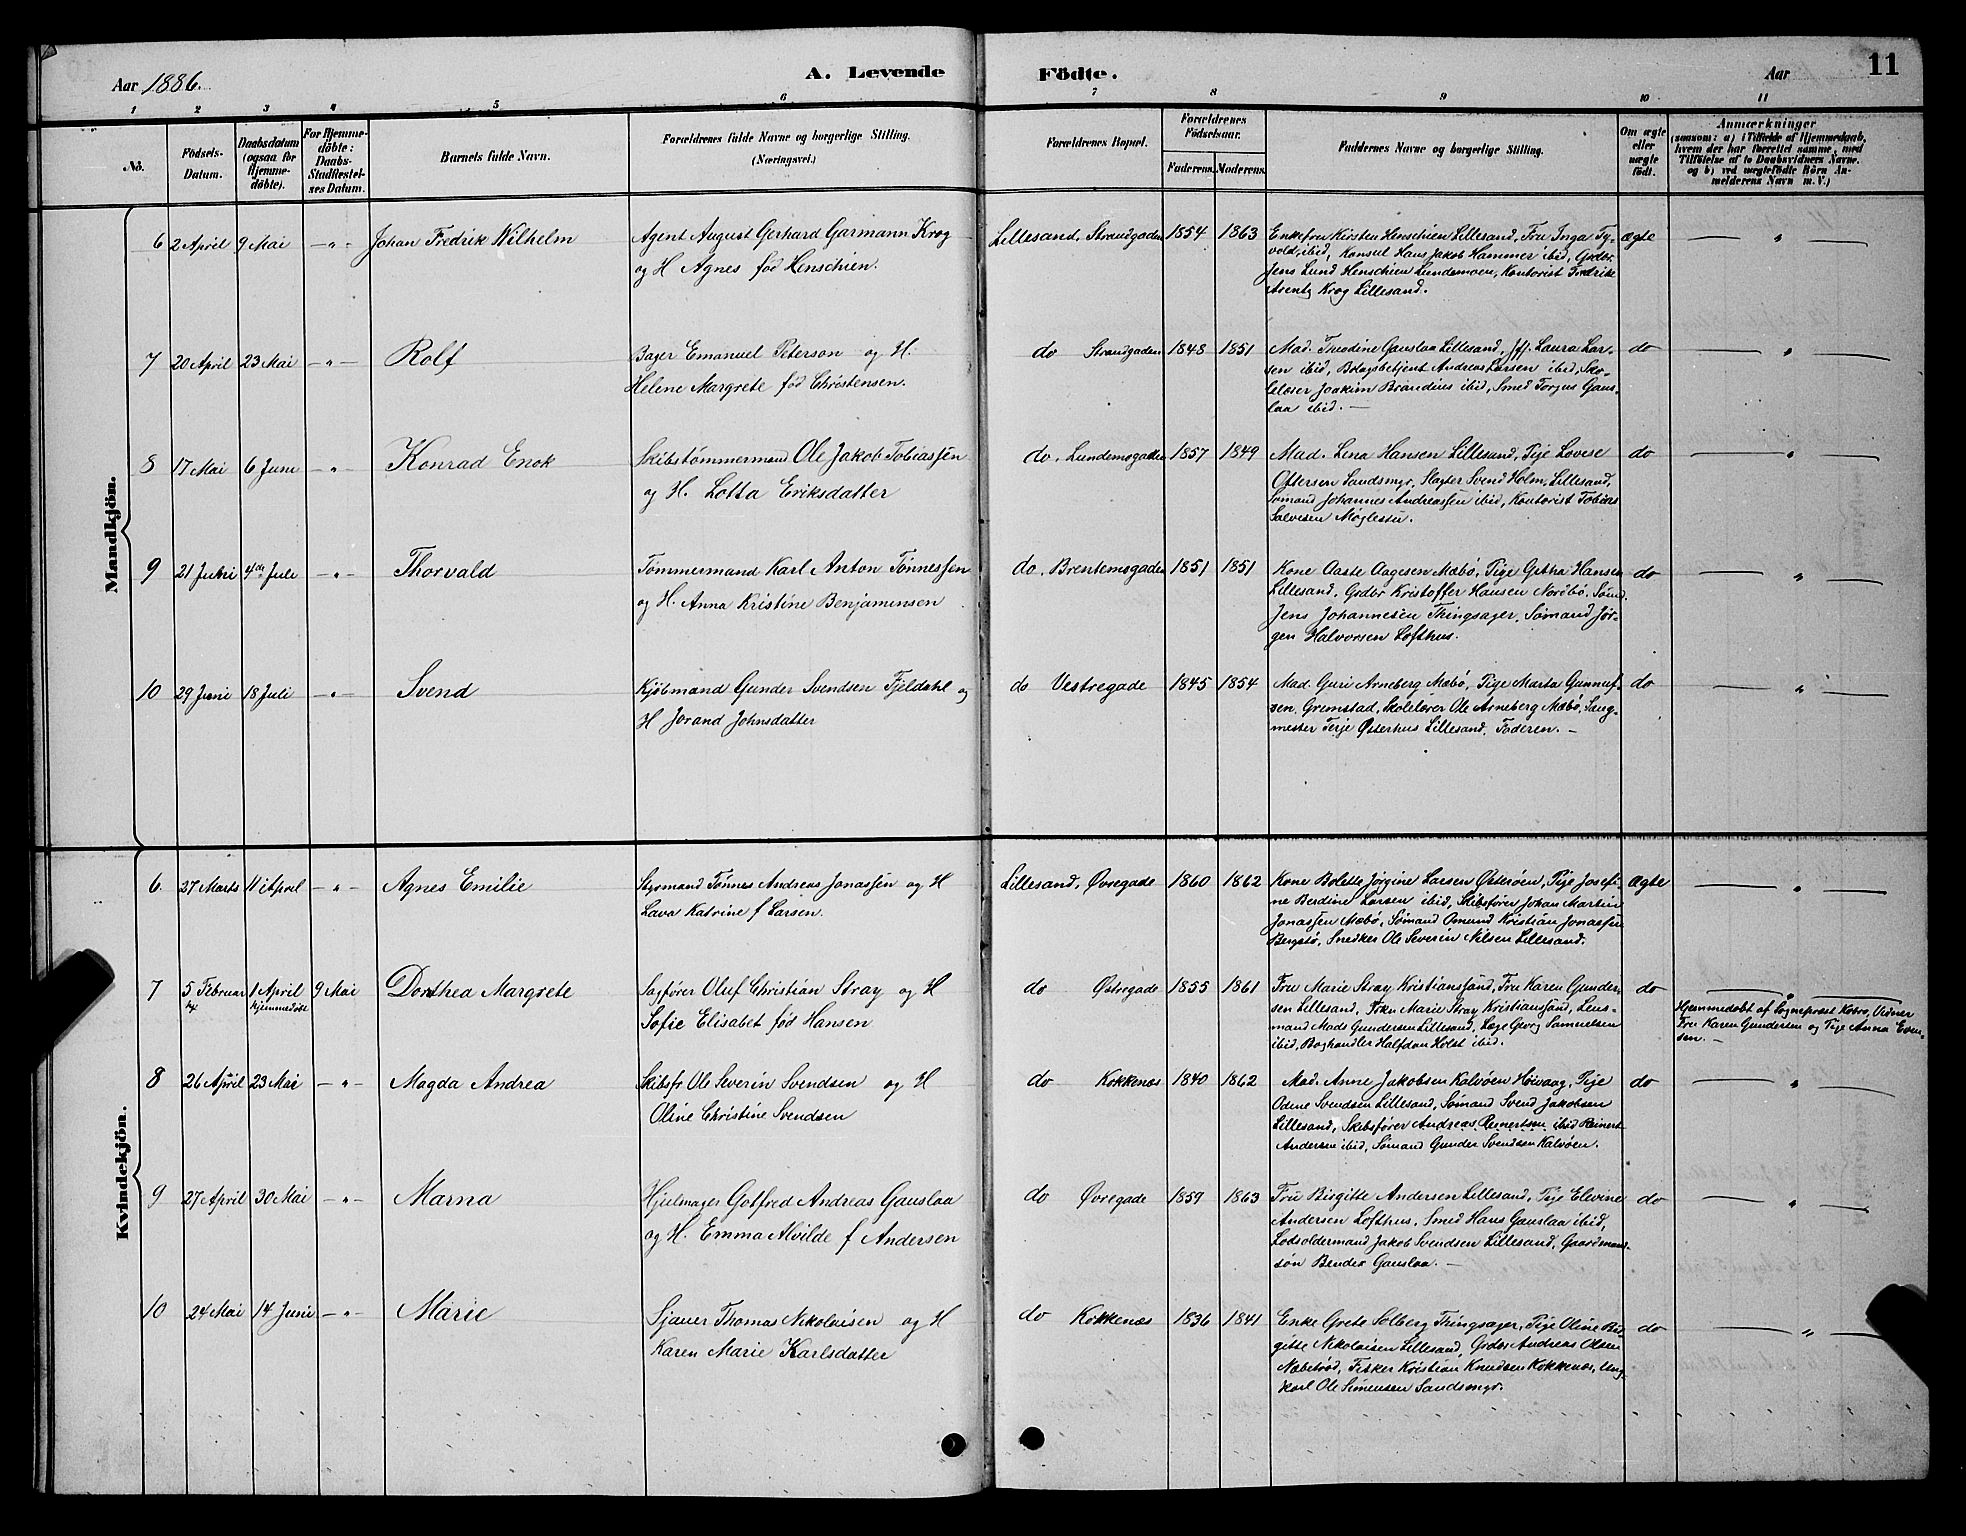 Aar 1886.
A. Levende Födte.
Aar
11
1 2 3 4 5 6 7 8 9 10 11
No.
Födsels-Datum.
Daabsdatum (ogsaa for Hjemmedöbte).
For Hjemmedöbte: Daabs-Stadfæstelses Datum.
Barnets fulde Navn.
Forældrenes fulde Navne og borgerlige Stilling.
(Næringsvei.)
Forældrenes Bopæl.
Forældrenes Födselsaar.
Faderens. Moderens.
Faddernes Navne og borgerlige Stilling.
Om ægte eller uægte födt.
Anmærkninger
(saasom: a) i Tilfælde af Hjemmedaab, hvem der har forrettet samme, med Tilföielse af to Daabsvidners Navne. og b) ved uægtefödte Börn Anmelderens Navn m. V.)
Mandkjön.
6 2 April 9 Mai – " – Johan Fredrik Wilhelm
Agent August Gerhard Garmann Krog
og H Agnes fød Henschien.
Lillesand, Strandgaden 1854 1863
Enkefru Kirsten Henschien Lillesand, Fru Inga Ty-
vold, ibid, Konsul Hans Jakob Hammer ibid, Grdbr.
Jens Lund Henschien Lundemoen, Kontorist Fredrik
Arentz Krog Lillesand.
ægte — " —
7 20 April 23 Mai – " – Rolf
Bager Emanuel Peterson og H.
Helene Margrete fød Christensen.
do Strandgaden 1848 1851
Mad. Theodine Gauslaa Lillesand, Jfr. Laura Lar-
sen ibid, Bolagsbetjent Andreas Larsen ibid, Sko-
lelærer Joakim Brandius ibid, Smed Torgus Gaus-
laa ibid. —
do — " —
8 17 Mai 6 Juni – " – Konrad Enok
Skibstømmermand Ole Jakob Tobiassen
og H. Lotta Eriksdatter
do. Lundemogaden 1857 1849
Mad. Lina Hansen Lillesand, Pige Lovise
Ottersen Sandsmyr, Slagter Svend Holm, Lillesand,
Sømand Johannes Andreassen ibid, Kontorist Tobias
Salvesen Møglestu.
do — " —
9 21 Juni 4de Juli – " – Thorvald
Tømmermand Karl Anton Tønnessen
og H. Anna Kristine Benjaminsen
do. Brentemogaden 1851 1851
Kone Aaste Aagesen Mæbø, Pige Getha Hansen
Lillesand, Grdbr Kristoffer Hansen Nordbø, Sømd.
Jens Johannesen Thingsager, Sømand Jør-
gen Halvorsen Lofthus.
do — " —
10 29 Juni 18 Juli – " – Svend
Kjøbmand Gunder Svendsen Fjeldahl og
H Jorand Johnsdatter
do Vestregade 1845 1854
Mad. Guri Arneberg Mæbø, Pige Marta Gunnuf-
sen, Gremstad, Skolelærer Ole Arneberg Mæbø, Saug-
mester Terje Østerhus Lillesand, Faderen. —
do — " —
Kvindekjön.
6. 27 Marts 11 April – " – Agnes Emilie
Styrmand Tønnes Andreas Jonassen og H
Lava Katrine f Larsen.
Lillesand, Øvregade 1860 1862
Kone Bolette Jørgine Larsen Østerøen, Pige Josefi-
ne Berdine Larsen ibid, Skibsfører Johan Martin
Jonassen Mæbø, Sømand Omund Kristian Jonassen
Bergstø, Snedker Ole Severin Nilsen Lillesand.
Ægte — " —
7 5 Februar 1 April hjemmedøbt 9 Mai Dorthea Margrete
Sagfører Oluf Christian Stray og H
Sofie Elisabet fød Hansen
do Østregade 1855 1861
Fru Marie Stray Kristianssand, Fru Karen Gunder-
sen Lillesand, Frkn Marie Stray Kristianssand, Lens-
mand Mads Gundersen Lillesand, Læge Georg Samuelsen
ibid, Boghandler Halfdan Holst ibid.
do — " —
Hjemmedøbt af Sognepræst Kobro, Vidner
Fru Karen Gundersen og Pige Anna Even-
sen. —
8 26 April 23 Mai – " – Magda Andrea
Skibsfr Ole Severin Svendsen og H
Oline Christine Svendsen
do Kokkenæs 1840 1862
Mad. Anne Jakobsen Kalvøen Høivaag, Pige
Odine Svendsen Lillesand, Sømand Svend Jakobsen
Lillesand, Skibsfører Andreas Reinertsen ibid Reinert
Andersen ibid, Sømand Gunder Svendsen Kalvøen.
do — " —
9 27 April 30 Mai – " – Marna
Hjulmager Gotfred Andreas Gauslaa
og H. Emma Alvilde f Andersen
do Øvregade 1859 1863
Fru Birgitte Andersen Lillesand, Pige Elevine
Andersen Lofthus, Smed Hans Gauslaa ibid,
Lodsoldermand Jakob Svendsen Lillesand, Gaardmand-
søn Bendix Gauslaa. —
do — " —
10 24 Mai 14 Juni – " – Marie
Sjauer Thomas Nikolaisen og H
Karen Marie Karlsdatter
do Kokkenæs 1836 1841
Enke Grete Solberg Thingsager, Pige Oline Bir-
gitte Nikolaisen Lillesand, Grdbr Andreas Olsen
Næbetrød, Fisker Kristian Knudsen Kokkenæs, Ung-
karl Ole Simensen Sandsmyr.
do — " —